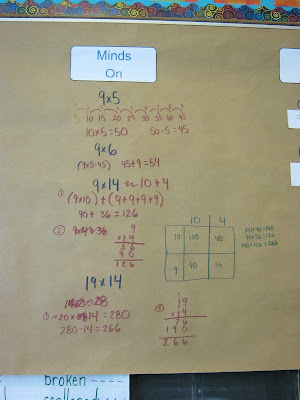 Minds
On
9x5
5 10 15 20 25 30 35 40 45
10x5=50 50-5=45
9x6
(9x5=45) 45+9=54
9x14 ≈ 10+4
① (9x10)+(9+9+9+9)
90+36=126
② 9x4=36
9
x14
36
90
126
10 4
10 100 40
9 90 36
100+40=140
90+36=126
140+126=266
19x14
=28
①→20x14=280
280-14=266
②
19
x14
76
190
266
broken